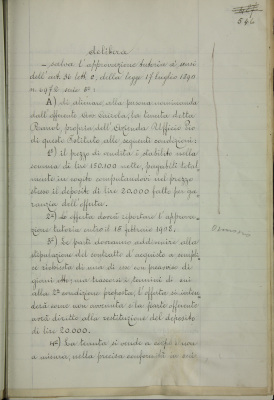 delibera
- salva l'approvazione tutoria ai sensi
dell'art. 36 della legge 17 luglio 1890
n. 6972 serie 3ª:
A) di alienare alla persona nominanda
dall'offerente la tenuta detta
proposta dall'Azienda Ufficio Pio
di questo Istituto alle seguenti condizioni:
1ª) il prezzo di vendita è stabilito nella
somma di lire 152.100 nette, pagabili total
mente in rogito computandovi nel prezzo
stesso il deposito di lire 20.000 fatto per ga
ranzia dell'offerta.
2ª) la offerta dovrà riportare l'approva
zione tutoria entro il 15 febbraio 1908.
3ª) Le parti dovranno addivenire alla
stipulazione del contratto d'acquisto a sempli
ce richiesta di una di esse con preavviso di
giorni otto; ma trascorsi i termini di cui
alla 2ª condizione predetta, l'offerta si inten
derà come non avvenuta e la parte offerente
avrà diritto alla restituzione del deposito
di lire 20.000.
4ª) La tenuta si vende a corpo e non
a misura, nella precisa